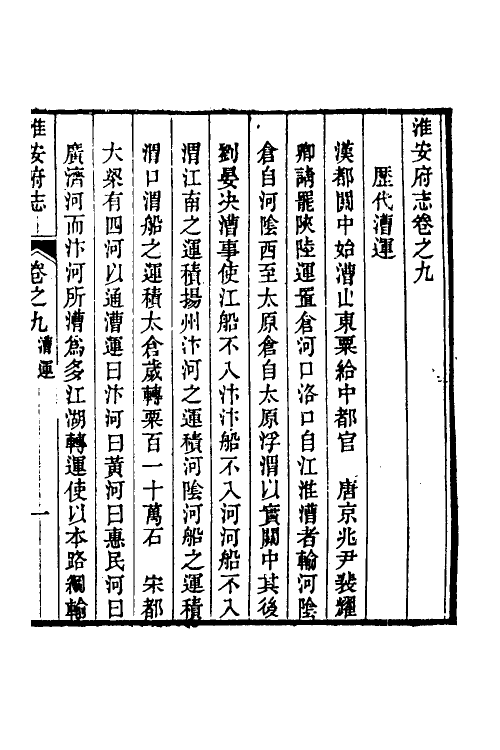 淮安府志卷之九
歷代漕運
漢都關中始漕山東粟給中都官　唐京兆尹裴耀
卿請罷陝陸運置倉河口洛口自江淮漕者輸河陰
倉自河陰西至太原倉自太原浮渭以實關中其後
劉晏決漕事使江船不入汴汴船不入河河船不入
渭江南之運積揚州汴河之運積河陰河船之運積
渭口渭船之運積太倉歲轉粟百一十萬石　宋都
大梁有四河以通漕運曰汴河曰黃河曰惠民河曰
廣濟河而汴河所漕為多江湖轉運使以本路綱輸
淮安府志
卷之九漕運
一